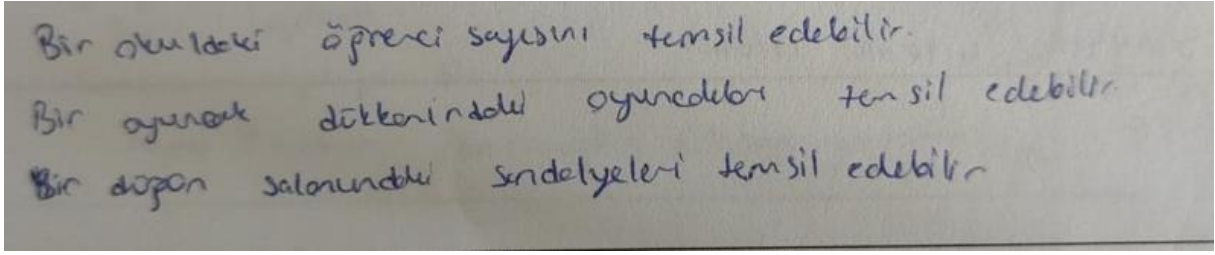 Bir okuldaki öğrenci sayısını temsil edebilir.
Bir oyuncak dükkanindaki oyuncakları temsil edebilir.
Bir düğün salonundaki sandalyeleri temsil edebilir